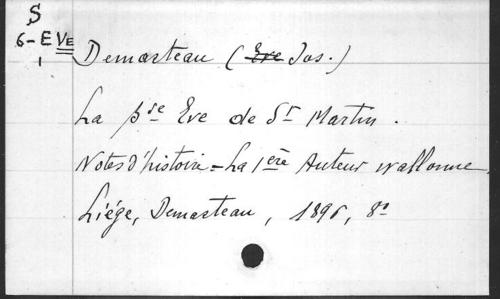 S
6-EVE
1
Demarteau (Eve Jos.)
La bse Eve de St Martin.
Notes d'histoire - La 1ère Auteur wallonne.
Liége, Demarteau, 1896, 8°